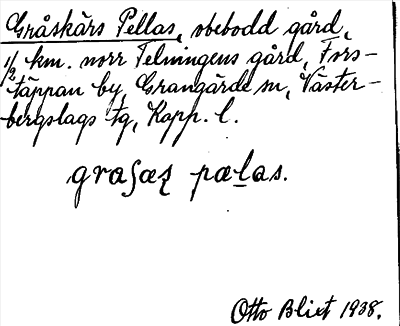 Gråskärs Pellas, obebodd gård,
1/2 km. norr Telningens gård, Fors-
täppan by, Grangärde sn, Väster-
bergslags tg, Kopp. l.
graʃæʂ pæḻas.
Otto Blixt 1938.